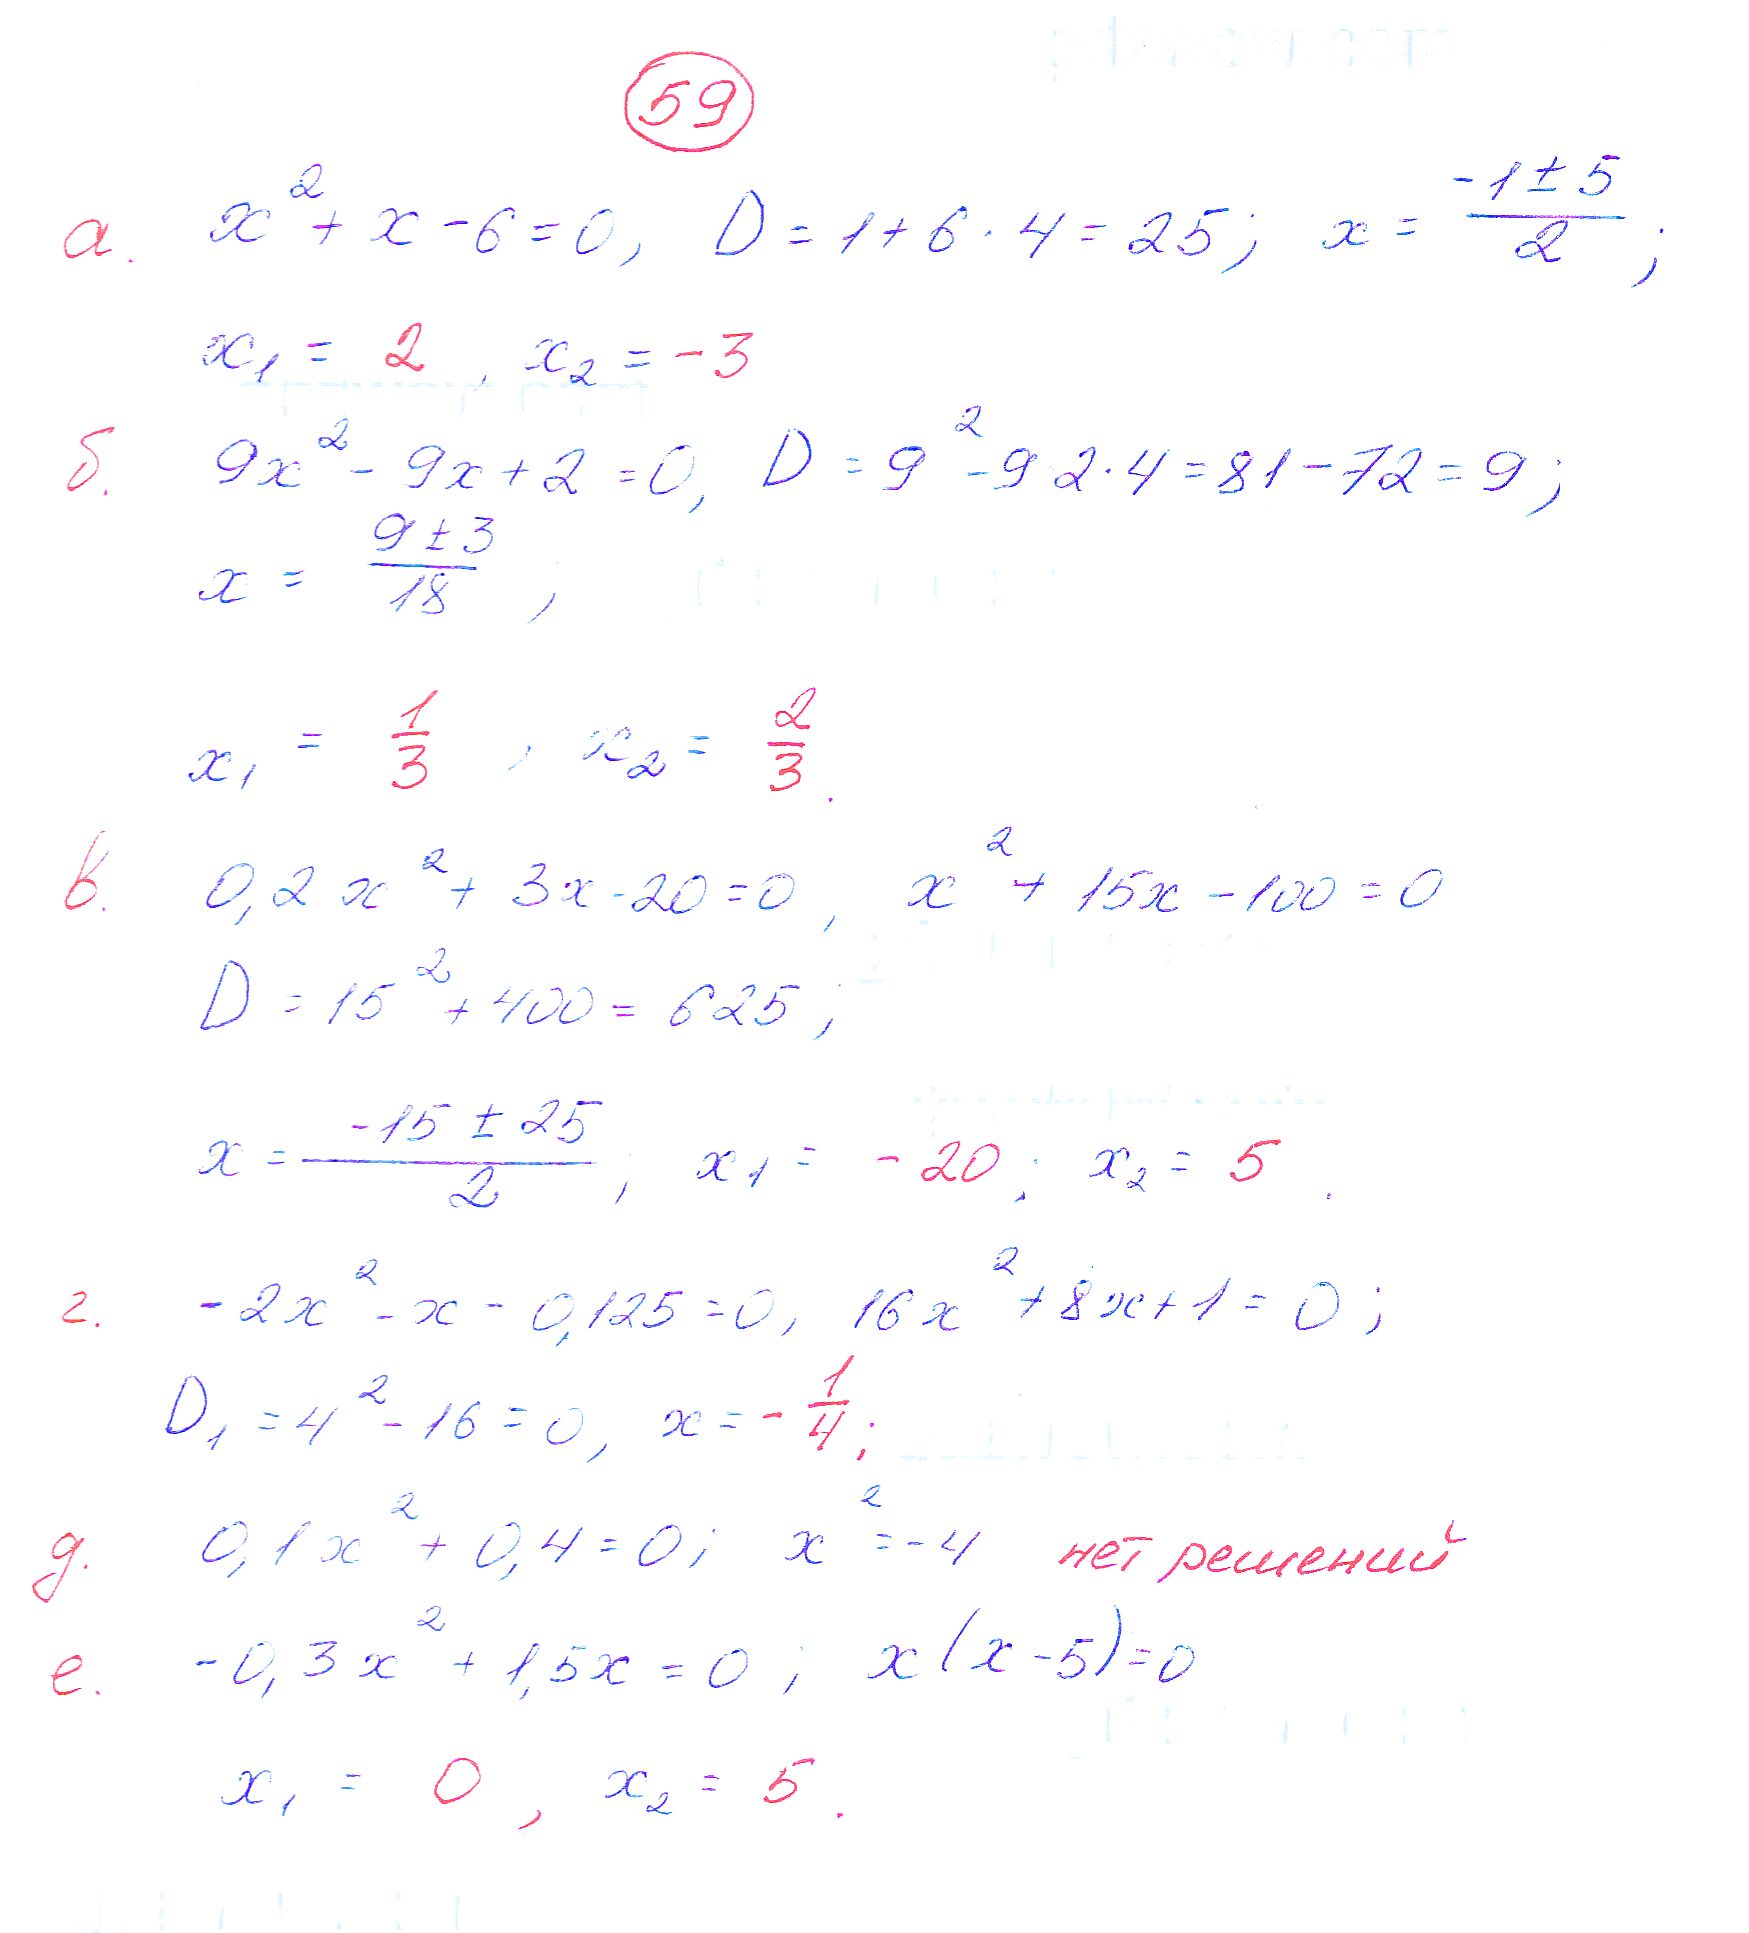 59
а. x² + x - 6 = 0, D = 1 + 6 · 4 = 25; x = (-1 ± 5)/2;
x₁ = 2, x₂ = -3
б. 9x² - 9x + 2 = 0, D = 9² - 9 2 · 4 = 81 - 72 = 9;
x = (9 ± 3)/18,
x₁ = 1/3, x₂ = 2/3.
в. 0,2x² + 3x - 20 = 0, x² + 15x - 100 = 0
D = 15² + 400 = 625;
x = (-15 ± 25)/2, x₁ = -20; x₂ = 5.
г. -2x² - x - 0,125 = 0, 16x² + 8x + 1 = 0;
D₁ = 4² - 16 = 0, x = -1/4;
д. 0,1x² + 0,4 = 0; x² = -4 нет решений
е. -0,3x² + 1,5x = 0; x(x - 5) = 0
x₁ = 0, x₂ = 5.